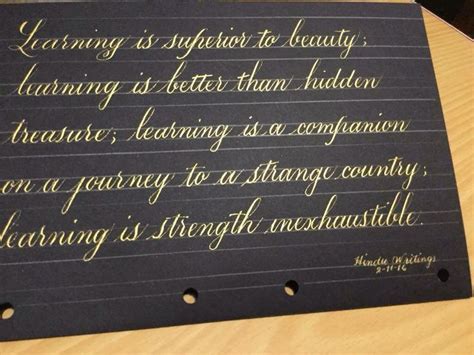 Learning is superior to beauty;
learning is better than hidden
treasure; learning is a companion
on a journey to a strange country;
learning is strength inexhaustible.
Hindu Writings
2-11-16